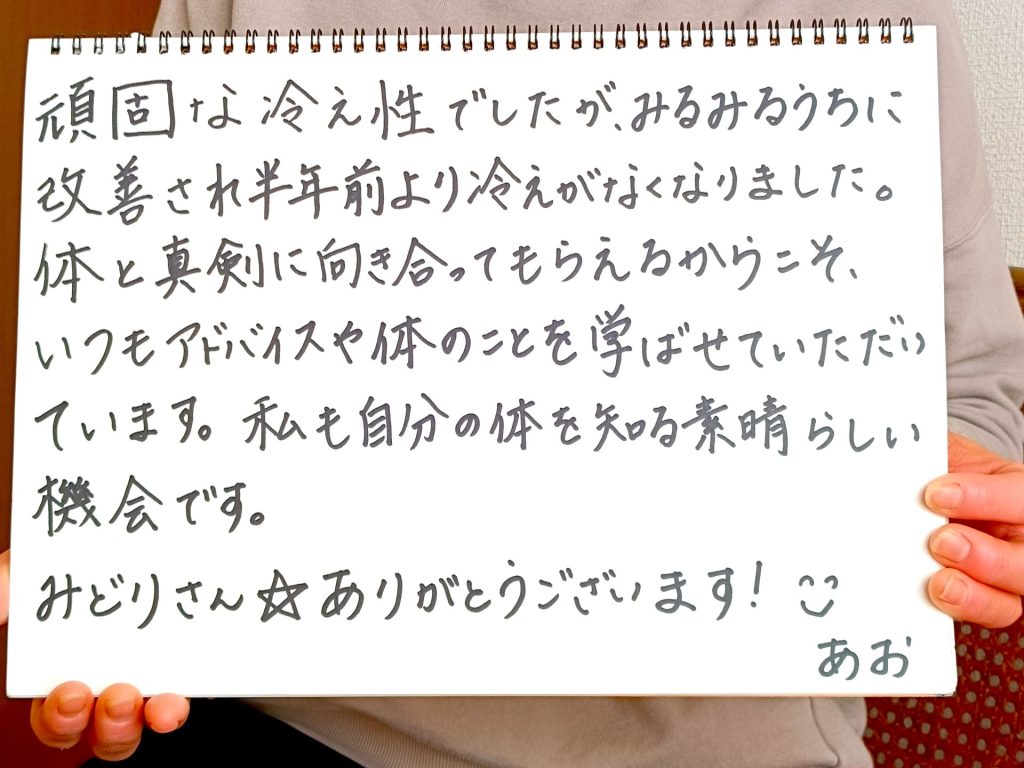 頑固な冷え性でしたが、みるみるうちに
改善され半年前より冷えがなくなりました。
体と真剣に向き合ってもらえるからこそ、
いつもアドバイスや体のことを学ばせていただい
ています。私も自分の体を知る素晴らしい
機会です。
みどりさん☆ありがとうございます!
あお